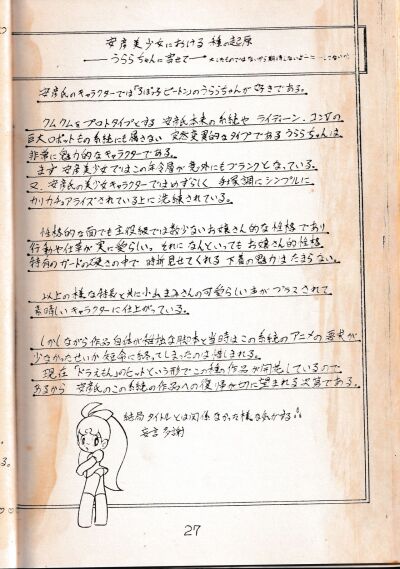 安彦美少女における種の起源
―うららちゃんに寄せて―
安彦氏のキャラクターでは「ろぼっ子ビートン」のうららちゃんが好きである。
クムクムをプロトタイプとする安彦氏本来の系統や ライディーン、コンVの
巨大ロボットもの系統にも属さない 突然変異的なタイプであるうららちゃんは、
非常に魅力的なキャラクターである。
まず 安彦美少女ではこの年令層が意外にもブランクとなっている。
又、安彦氏の美少女キャラクターではめずらしく 手塚調にシンプルに
カリカチュアライズされている上に洗練されている。
性格的な面でも主役級では数少ないお嬢さん的な性格であり
行動や仕草が実に愛らしい。それに なんといっても お嬢さん的性格
特有のガードの硬さの中で 時折見せてくれる 下着の魅力はたまらない。
以上の様な特長と共に小山まみさんの可愛らしい声がプラスされて
素晴しいキャラクターに仕上がっている。
しかしながら 作品自体が な脚本と当時はこの系統のアニメの要求が
少なかったせいか短命に終ってしまったのは惜しまれる。
現在「ドラえもん」のヒットという形でこの種の作品が開花しているので
あるから 安彦氏のこの系統の作品への復帰が切に望まれる次第である。
結局タイトルとは関係なかった様な気がする
妄言多謝
3。
27